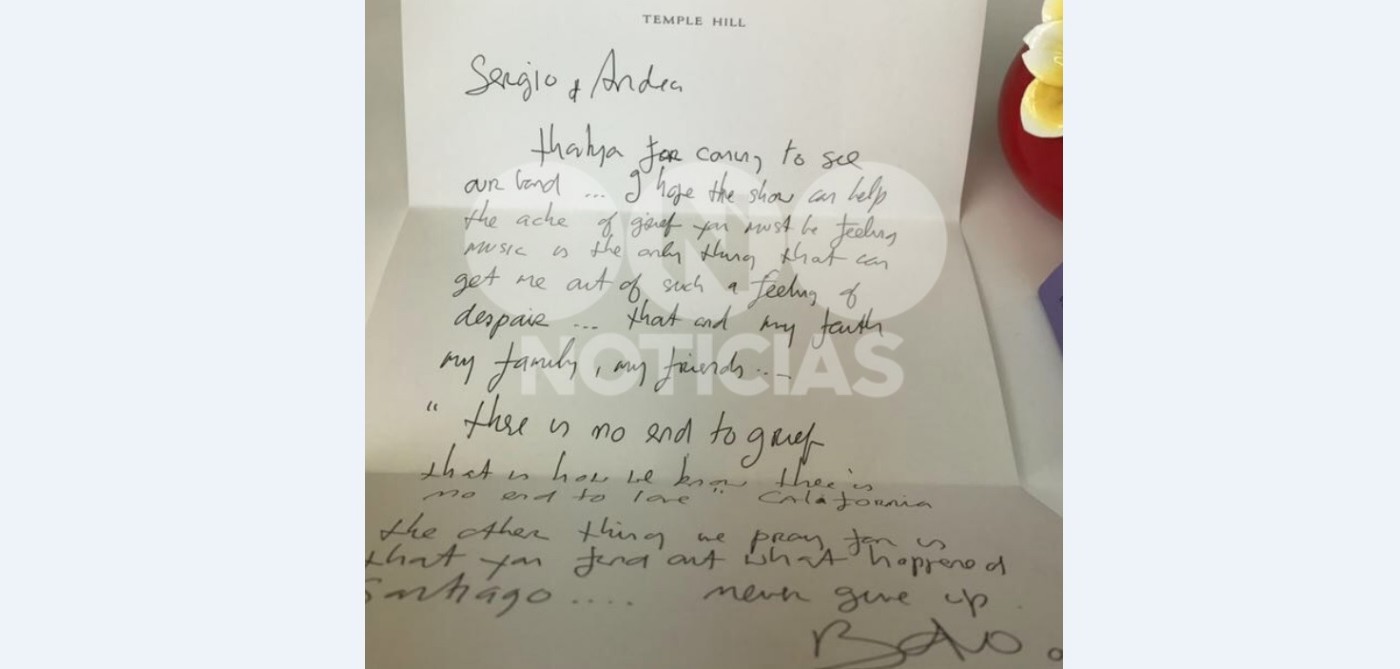 TEMPLE HILL
Sergio & Andrea
thankya for coming to see
our band ... I hope the show can help
the ache of grief you must be feeling
music is the only thing that can
get me out of such a feeling of
despair ... that and my faith
my family, my friends ...
" there is no end to grief
that is how we know there is
no end to love " California
the other thing we pray for is
that you find out what happened
Santiago .... never give up.
BONO.
ONO
NOTICIAS